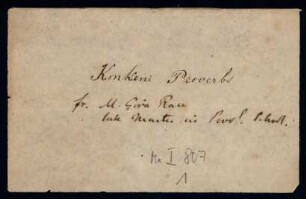 Konkani Proverbs
fr. M. Giva Rau
late Master in Prov. School.
Mr I 807
1